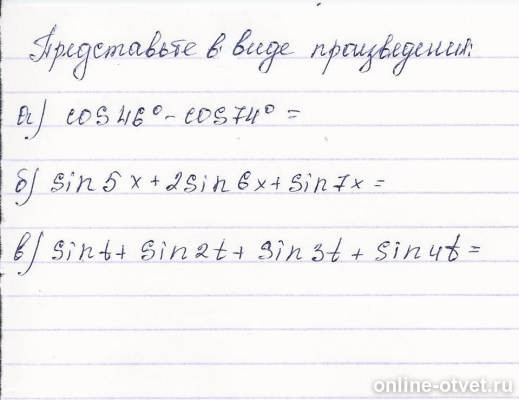 Представьте в виде произведения:
а) cos 46° - cos 74° =
б) sin 5x + 2sin 6x + sin 7x =
в) sin t + sin 2t + sin 3t + sin 4t =
online-otvet.ru